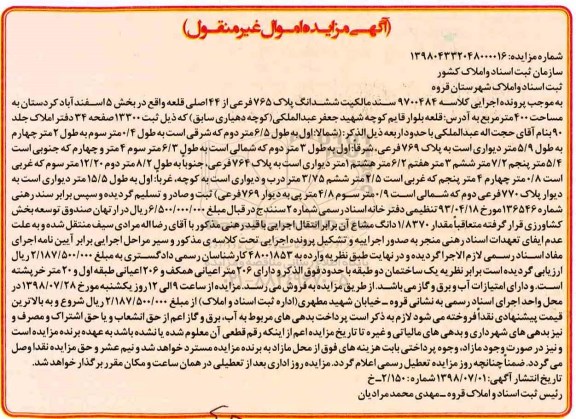 (آگهی مزایده اموال غیرمنقول)
شماره مزایده: ۱۳۹۸۰۴۳۳۲۰۴۸۰۰۰۰۱۶
سازمان ثبت اسناد و املاک کشور
ثبت اسناد و املاک شهرستان قروه
به موجب پرونده اجرایی کلاسه ۹۷۰۰۴۸۴ سند مالکیت ششدانگ پلاک ۷۶۵ فرعی از ۴۴ اصلی قلعه واقع در بخش ۵ اسفندآباد کردستان به
مساحت ۴۰۰ مترمربع به آدرس: قلعه بلوار قایم کوچه شهید جعفر عبدالملکی (کوچه دهیاری سابق) که ذیل ثبت ۱۳۳۰۰ صفحه ۳۴ دفتر املاک جلد
۹۰ بنام آقای حجت اله عبدالملکی با حدود اربعه ذیل الذکر: (شمالا: اول به طول ۶/۵ متر دوم که شرقی است به طول ۰/۴ متر سوم به طول ۲ متر چهارم
به طول ۵/۹ متر دیواری است به پلاک ۷۶۹ فرعی، شرقاً: اول به طول ۳ متر دوم که شمالی است به طول ۶/۳ متر سوم ۴ متر و چهارم که جنوبی است
۵/۴ متر پنجم ۷/۲ متر ششم ۳ متر هفتم ۶/۲ متر هشتم ۱ متر دیواری است به پلاک ۷۶۴ فرعی، جنوبا به طول ۸/۲ متر دوم ۱۲/۲۰ متر سوم که غربی
است ۰/۸ متر چهارم ۴ متر پنجم که غربی است ۲/۵ متر ششم ۳/۷۵ متر درب و دیواری است به کوچه، غرباً: اول به طول ۱۵/۵ متر دیواری است به
دیوار پلاک ۷۷۰ فرعی دوم که شمالی است ۰/۹ متر سوم ۴/۸ متر پی به دیوار ۷۶۹ فرعی) ثبت و صادر و تسلیم گردیده و سپس برابر سند رهنی
شماره ۱۳۶۵۴۶ مورخ ۹۳/۰۴/۱۸ تنظیمی دفترخانه اسناد رسمی شماره ۲ سنندج در قبال مبلغ ۶/۵۰۰/۰۰۰/۰۰۰ ریال در ارتهان صندوق توسعه بخش
کشاورزی قرار گرفته متعاقباً مقدار ۱/۸۳۷۰ دانگ مشاع آن برابر انتقال اجرایی با قید رهنی مذکور با آقای رضاله مرادی سیف منتقل شده و به علت
عدم ایفای تعهدات اسناد رهنی منجر به صدور اجراییه و تشکیل پرونده اجرایی تحت کلاسه ی مذکور و سیر مراحل اجرایی برابر آیین نامه اجرای
مفاد اسناد رسمی لازم الاجرا گردیده و در نهایت طبق نظریه وارده به ۴۸۰۰۱۸۵۳ کارشناس رسمی دادگستری به مبلغ ۲/۱۸۷/۵۰۰/۰۰۰ ریال
ارزیابی گردیده است برابر نظریه یک ساختمان دو طبقه با حدود فوق الذکر و دارای ۲۰۶ متر اعیانی همکف و ۲۰۶ اعیانی طبقه اول و ۲۰ متر خرپشته
است. و دارای امتیازات آب و برق و گاز می باشد. از طریق مزایده به فروش می رسد. مزایده از ساعت ۹ الی ۱۲ روز یکشنبه مورخ ۱۳۹۸/۰۷/۲۸ در
محل واحد اجرای اسناد رسمی به نشانی قروه - خیابان شهید مطهری (اداره ثبت اسناد و املاک) از مبلغ ۲/۱۸۷/۵۰۰/۰۰۰ ریال شروع و به بالاترین
قیمت پیشنهادی نقداً فروخته می شود لازم به ذکر است پرداخت بدهی های مربوط به آب، برق و گاز اعم از حق انشعاب و یا حق اشتراک و مصرف و
نیز بدهی های شهرداری و بدهی های مالیاتی و غیره تا تاریخ مزایده اعم از اینکه رقم قطعی آن معلوم شده یا نشده باشد به عهده برنده مزایده است
و نیز در صورت وجود مازاد، وجوه پرداختی بابت هزینه های فوق از محل مازاد به برنده مزایده مسترد خواهد شد و نیم عشر و حق مزایده نقداً وصل
می گردد. ضمناً چنانچه روز مزایده تعطیل رسمی اعلام گردد. مزایده روز اداری بعد از تعطیلی در همان ساعت و مکان مقرر برگذار خواهد شد.
تاریخ انتشار آگهی: ۱۳۹۸/۰۷/۰۱ شماره: ۲/۱۵۰-خ
رئیس ثبت اسناد و املاک قروه - مهدی محمد مرادیان